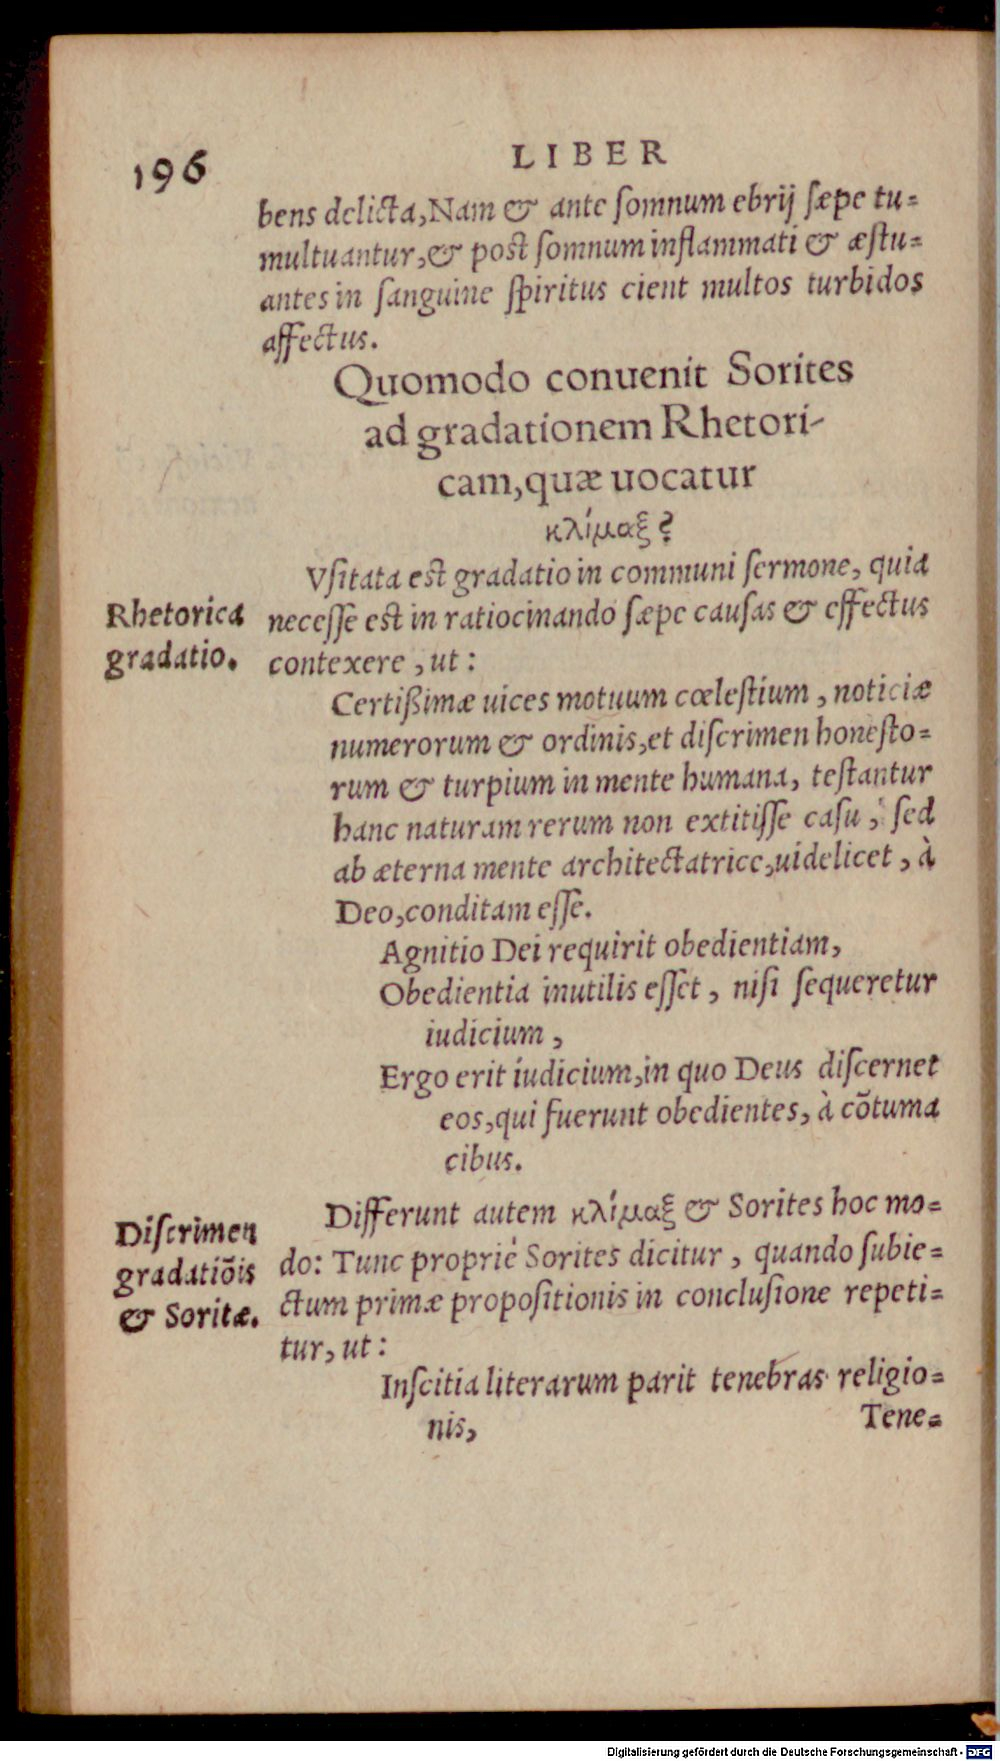 196
LIBER
bens delicta, Nam & ante ſomnum ebrij ſæpe tu=
multuantur, & poſt ſomnum inflammati & æſtu=
antes in ſanguine ſpiritus cient multos turbidos
affectus.
Quomodo conuenit Sorites
ad gradationem Rhetori-
cam, quæ uocatur
κλίμαξ?
Vſitata eſt gradatio in communi ſermone, quia
Rhetorica
gradatio.
neceſſe eſt in ratiocinando ſæpe cauſas & effectus
contexere, ut:
Certißimæ uices motuum cœleſtium, noticiæ
numerorum & ordinis, et diſcrimen honeſto=
rum & turpium in mente humana, teſtantur
hanc naturam rerum non extitiſſe caſu, ſed
ab æterna mente architectatrice, uidelicet, à
Deo, conditam eſſe.
Agnitio Dei requirit obedientiam,
Obedientia inutilis eſſet, niſi ſequeretur
iudicium,
Ergo erit iudicium, in quo Deus diſcernet
eos, qui fuerunt obedientes, à cõtuma
cibus.
Diſcrimen
gradatiõis
& Soritæ.
Differunt autem κλίμαξ & Sorites hoc mo=
do: Tunc propriè Sorites dicitur, quando ſubie=
ctum primæ propoſitionis in concluſione repeti=
tur, ut:
Inſcitia literarum parit tenebras religio=
nis,
Tene=
Digitalisierung gefördert durch die Deutsche Forschungsgemeinschaft - DFG